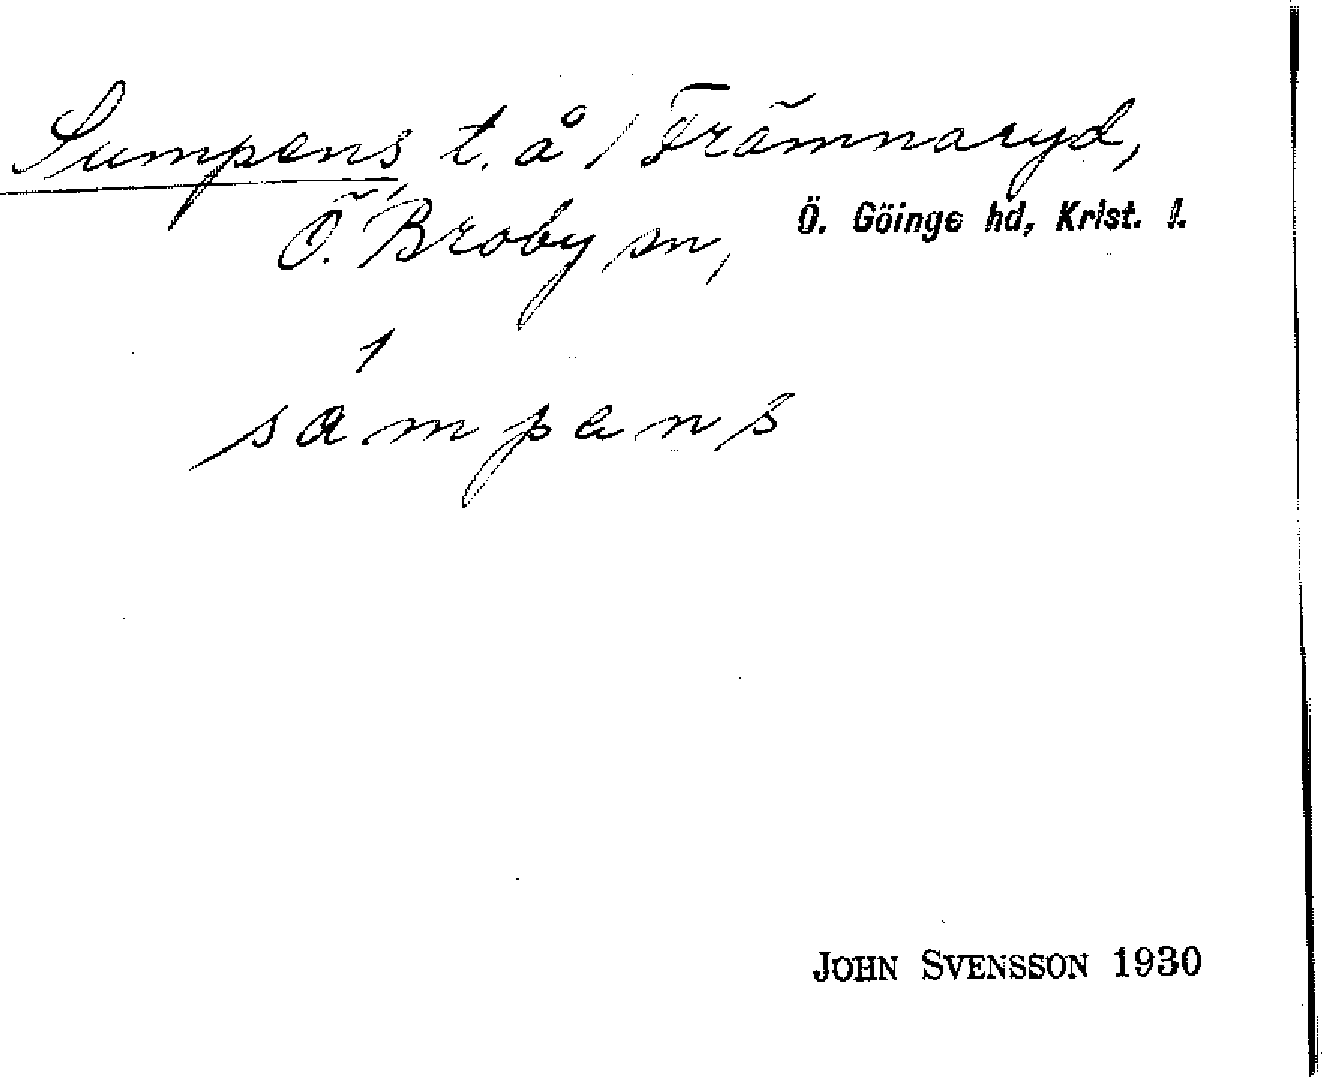 Sumpens t. å / Främnaryd,
Ö. Broby sn, Ö. Göinge hd, Krist. l.
1
såmpens
JOHN SVENSSON 1930